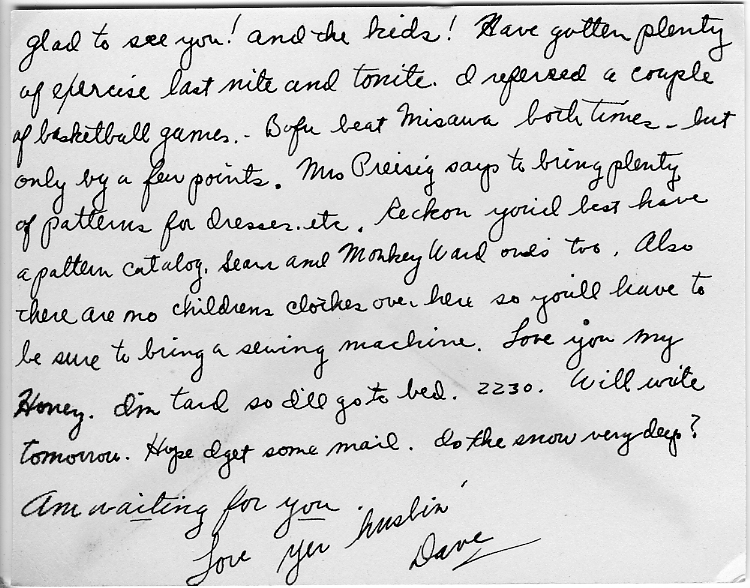 glad to see you! and the kids! Have gotten plenty
of exercise last nite and tonite. I refereed a couple
of basketball games. - Bofu beat Misawa both times - but
only by a few points. Mrs Preisig says to bring plenty
of patterns for dresses. etc. Reckon you'd best have
a pattern catalog. Sears and Monkey Ward ones too. Also
there are no childrens clothes over here so you'll have to
be sure to bring a sewing machine. Love you my
Honey. I'm tard so I'll go to bed. 2230. Will write
tomorrow. Hope I get some mail. Is the snow very deep?
Am waiting for you.
Love yer husbin'
Dave